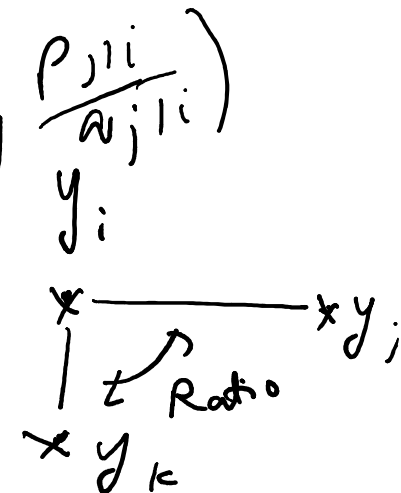 p_{j|i}
q_{j|i} )
y_i
x x y_j
Ratio
x y_k